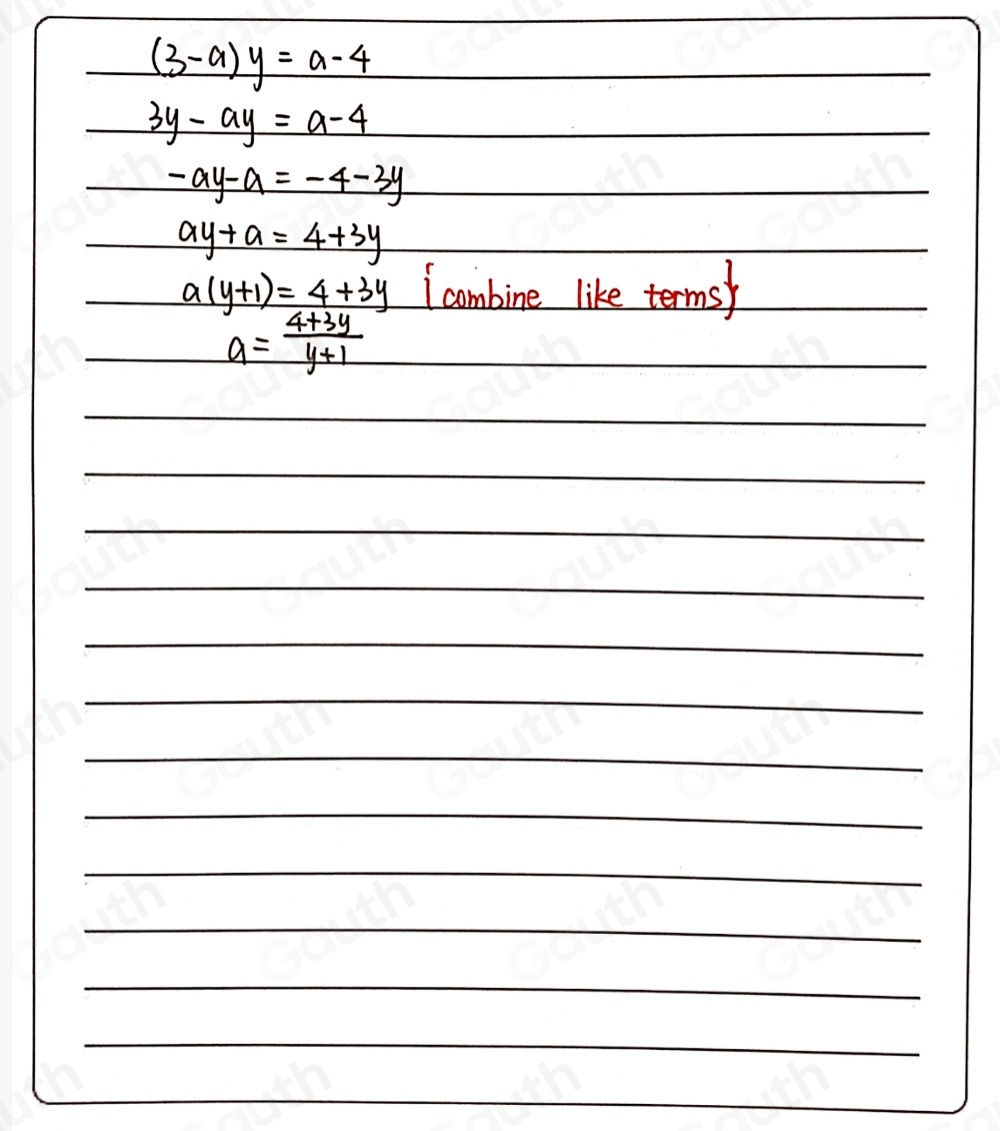 (3-a)y = a-4
3y - ay = a-4
-ay-a = -4-3y
ay+a = 4+3y
a(y+1) = 4+3y {combine like terms}
a = \frac{4+3y}{y+1}
Gauth